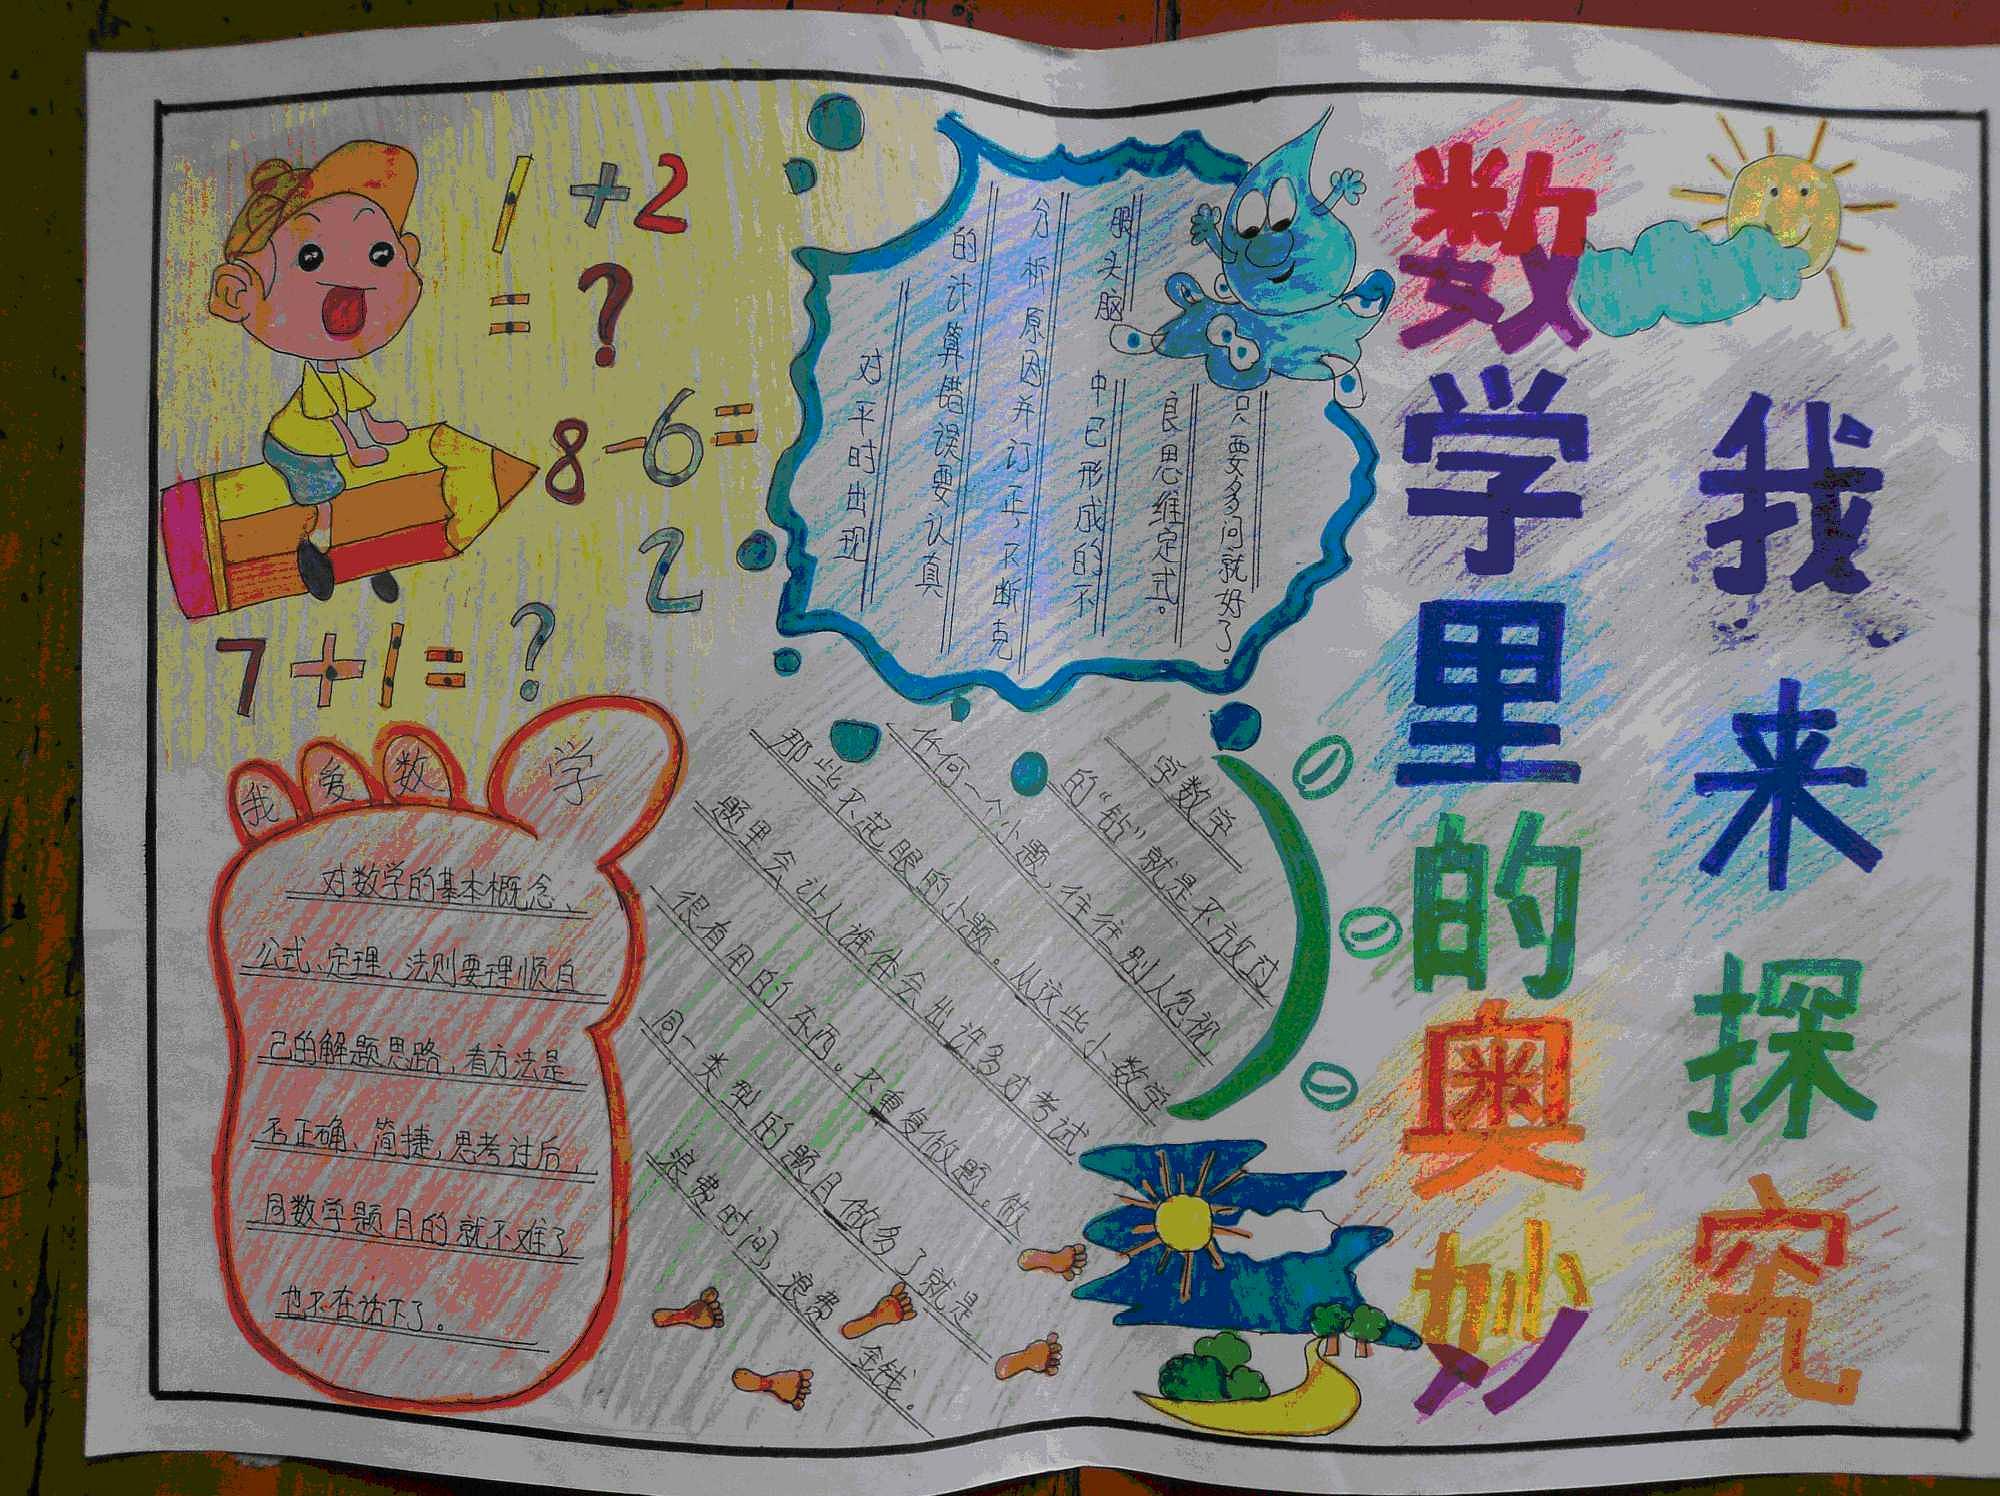 数学里的奥妙
我来探究
1+2
=?
8-6=
2
7+1=?
对平时出现
的计算错误要认真
分析原因并订正,不断克
服头脑中已形成的不
良思维定式。
只要多问就好了。
我爱数学
对数学的基本概念、
公式、定理、法则要理顺自
己的解题思路,看方法是
否正确、简捷,思考过后,
同数学题目的就不难了
也不在话下了。
学数学
的“钻”就是不放过
任何一个小题,往往别人忽视
那些不起眼的小题。从这些小数学
题里会让人谁体会出许多对考试
很有用的东西。不重复做题。做
同一类型的题目做多了就是
浪费时间,浪费金钱。